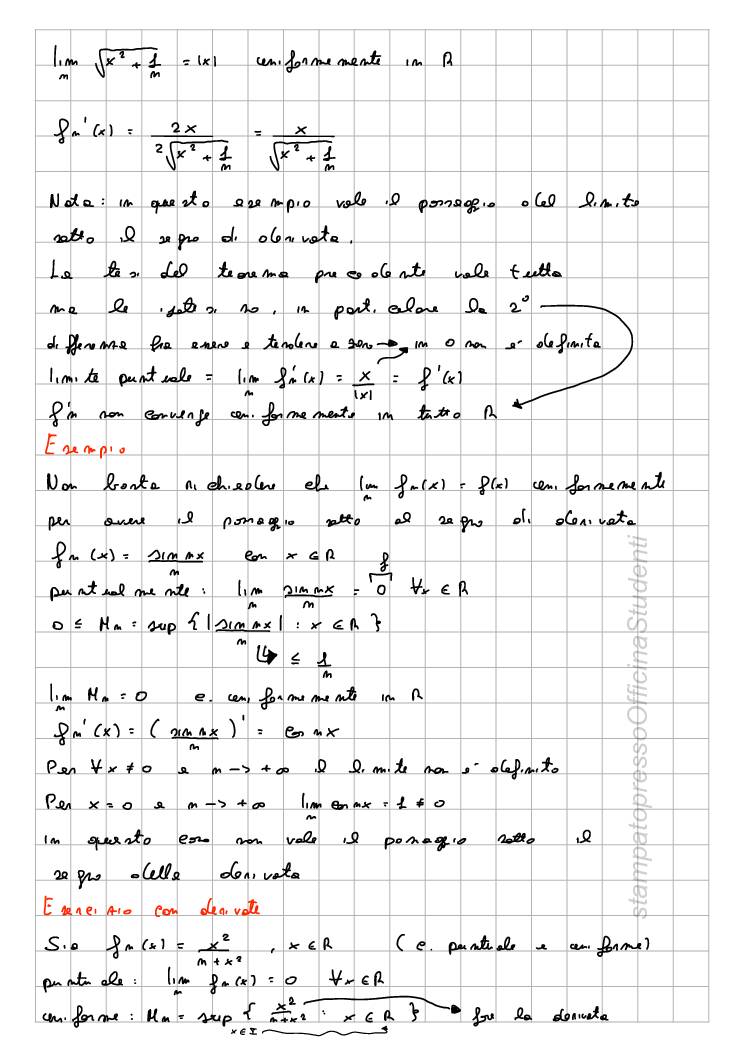 lim_n √(x² + 1/n) = |x| uniformemente in R
fn'(x) = 2x / 2√(x² + 1/n) = x / √(x² + 1/n)
Nota: in questo esempio vale il passaggio del limite
sotto il segno di derivata.
La tesi del teorema precedente vale tutta
ma le ipotesi no, in particolare la 2°
differenza fra essere e tendere a zero → in 0 non è definita
limite puntuale = lim_n fn'(x) = x/|x| = f'(x)
f'n non converge uniformemente in tutto R
Esempio
Non basta richiedere che lim_n fn(x) = f(x) uniformemente
per avere il passaggio sotto al segno di derivata
fn(x) = sin nx / n con x ∈ R f
puntualmente: lim_n sin nx / n = 0 ∀x ∈ R
0 ≤ Mn = sup { | sin nx / n | : x ∈ R }
↳ ≤ 1/n
lim_n Mn = 0 c. uniformemente in R
fn'(x) = ( sin nx / n )' = cos nx
Per ∀x ≠ 0 e n -> +∞ il limite non è definito
Per x = 0 e n -> +∞ lim_n cos nx = 1 ≠ 0
in questo caso non vale il passaggio sotto il
segno della derivata
Esercizio con derivate
Sia fn(x) = x² / (n + x²) , x ∈ R (c. puntuale e uniforme)
puntuale: lim_n fn(x) = 0 ∀x ∈ R
uniforme: Mn = sup_{x ∈ I} { x² / (n + x²) : x ∈ R } → fare la derivata
stampatopressoOfficinaStudenti